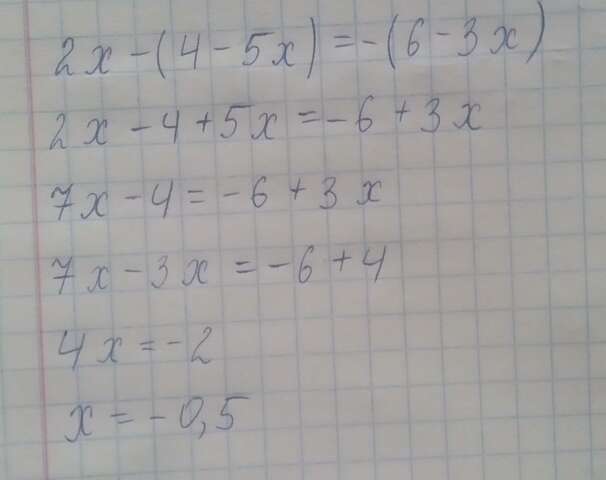 2x-(4-5x)=-(6-3x)
2x-4+5x=-6+3x
7x-4=-6+3x
7x-3x=-6+4
4x=-2
x=-0,5